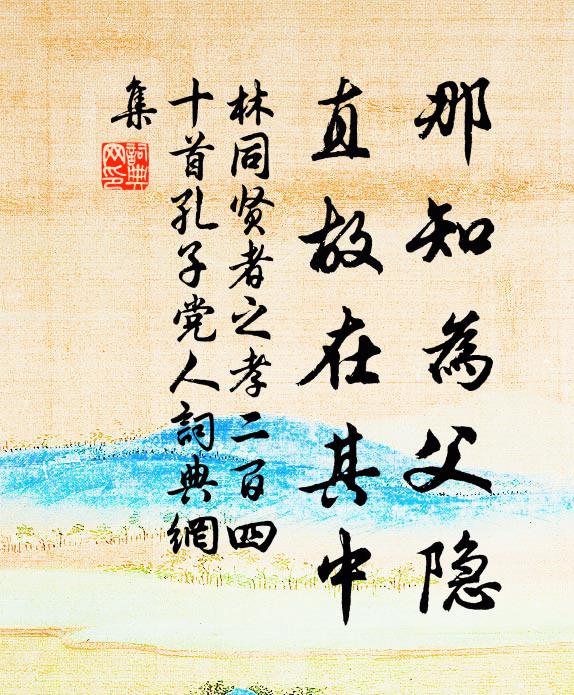 那知為父隐
直故在其中
林同贤者之孝二百四
十首孔子党人詞典網
集
詞典
网印